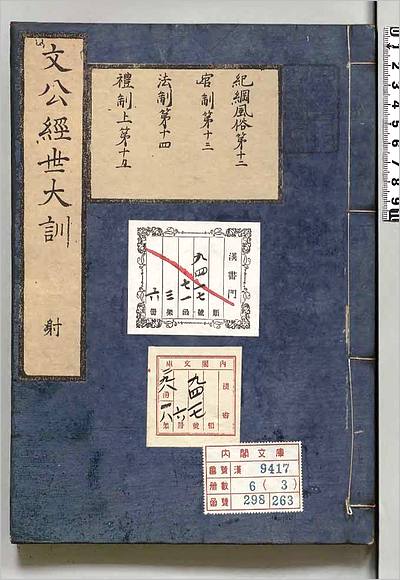 文公經世大訓
射
紀綱風俗第十二
官制第十三
法制第十四
禮制上第十五
漢書門
九四一七
類
號
七一
函
三
架
六
冊
內閣文庫
漢書
九四一七
類
號
六
冊
函
架
內閣文庫
番號 漢 9417
冊數 6 (3)
函號 298 263
1 2 3 4 5 6 7 8 9